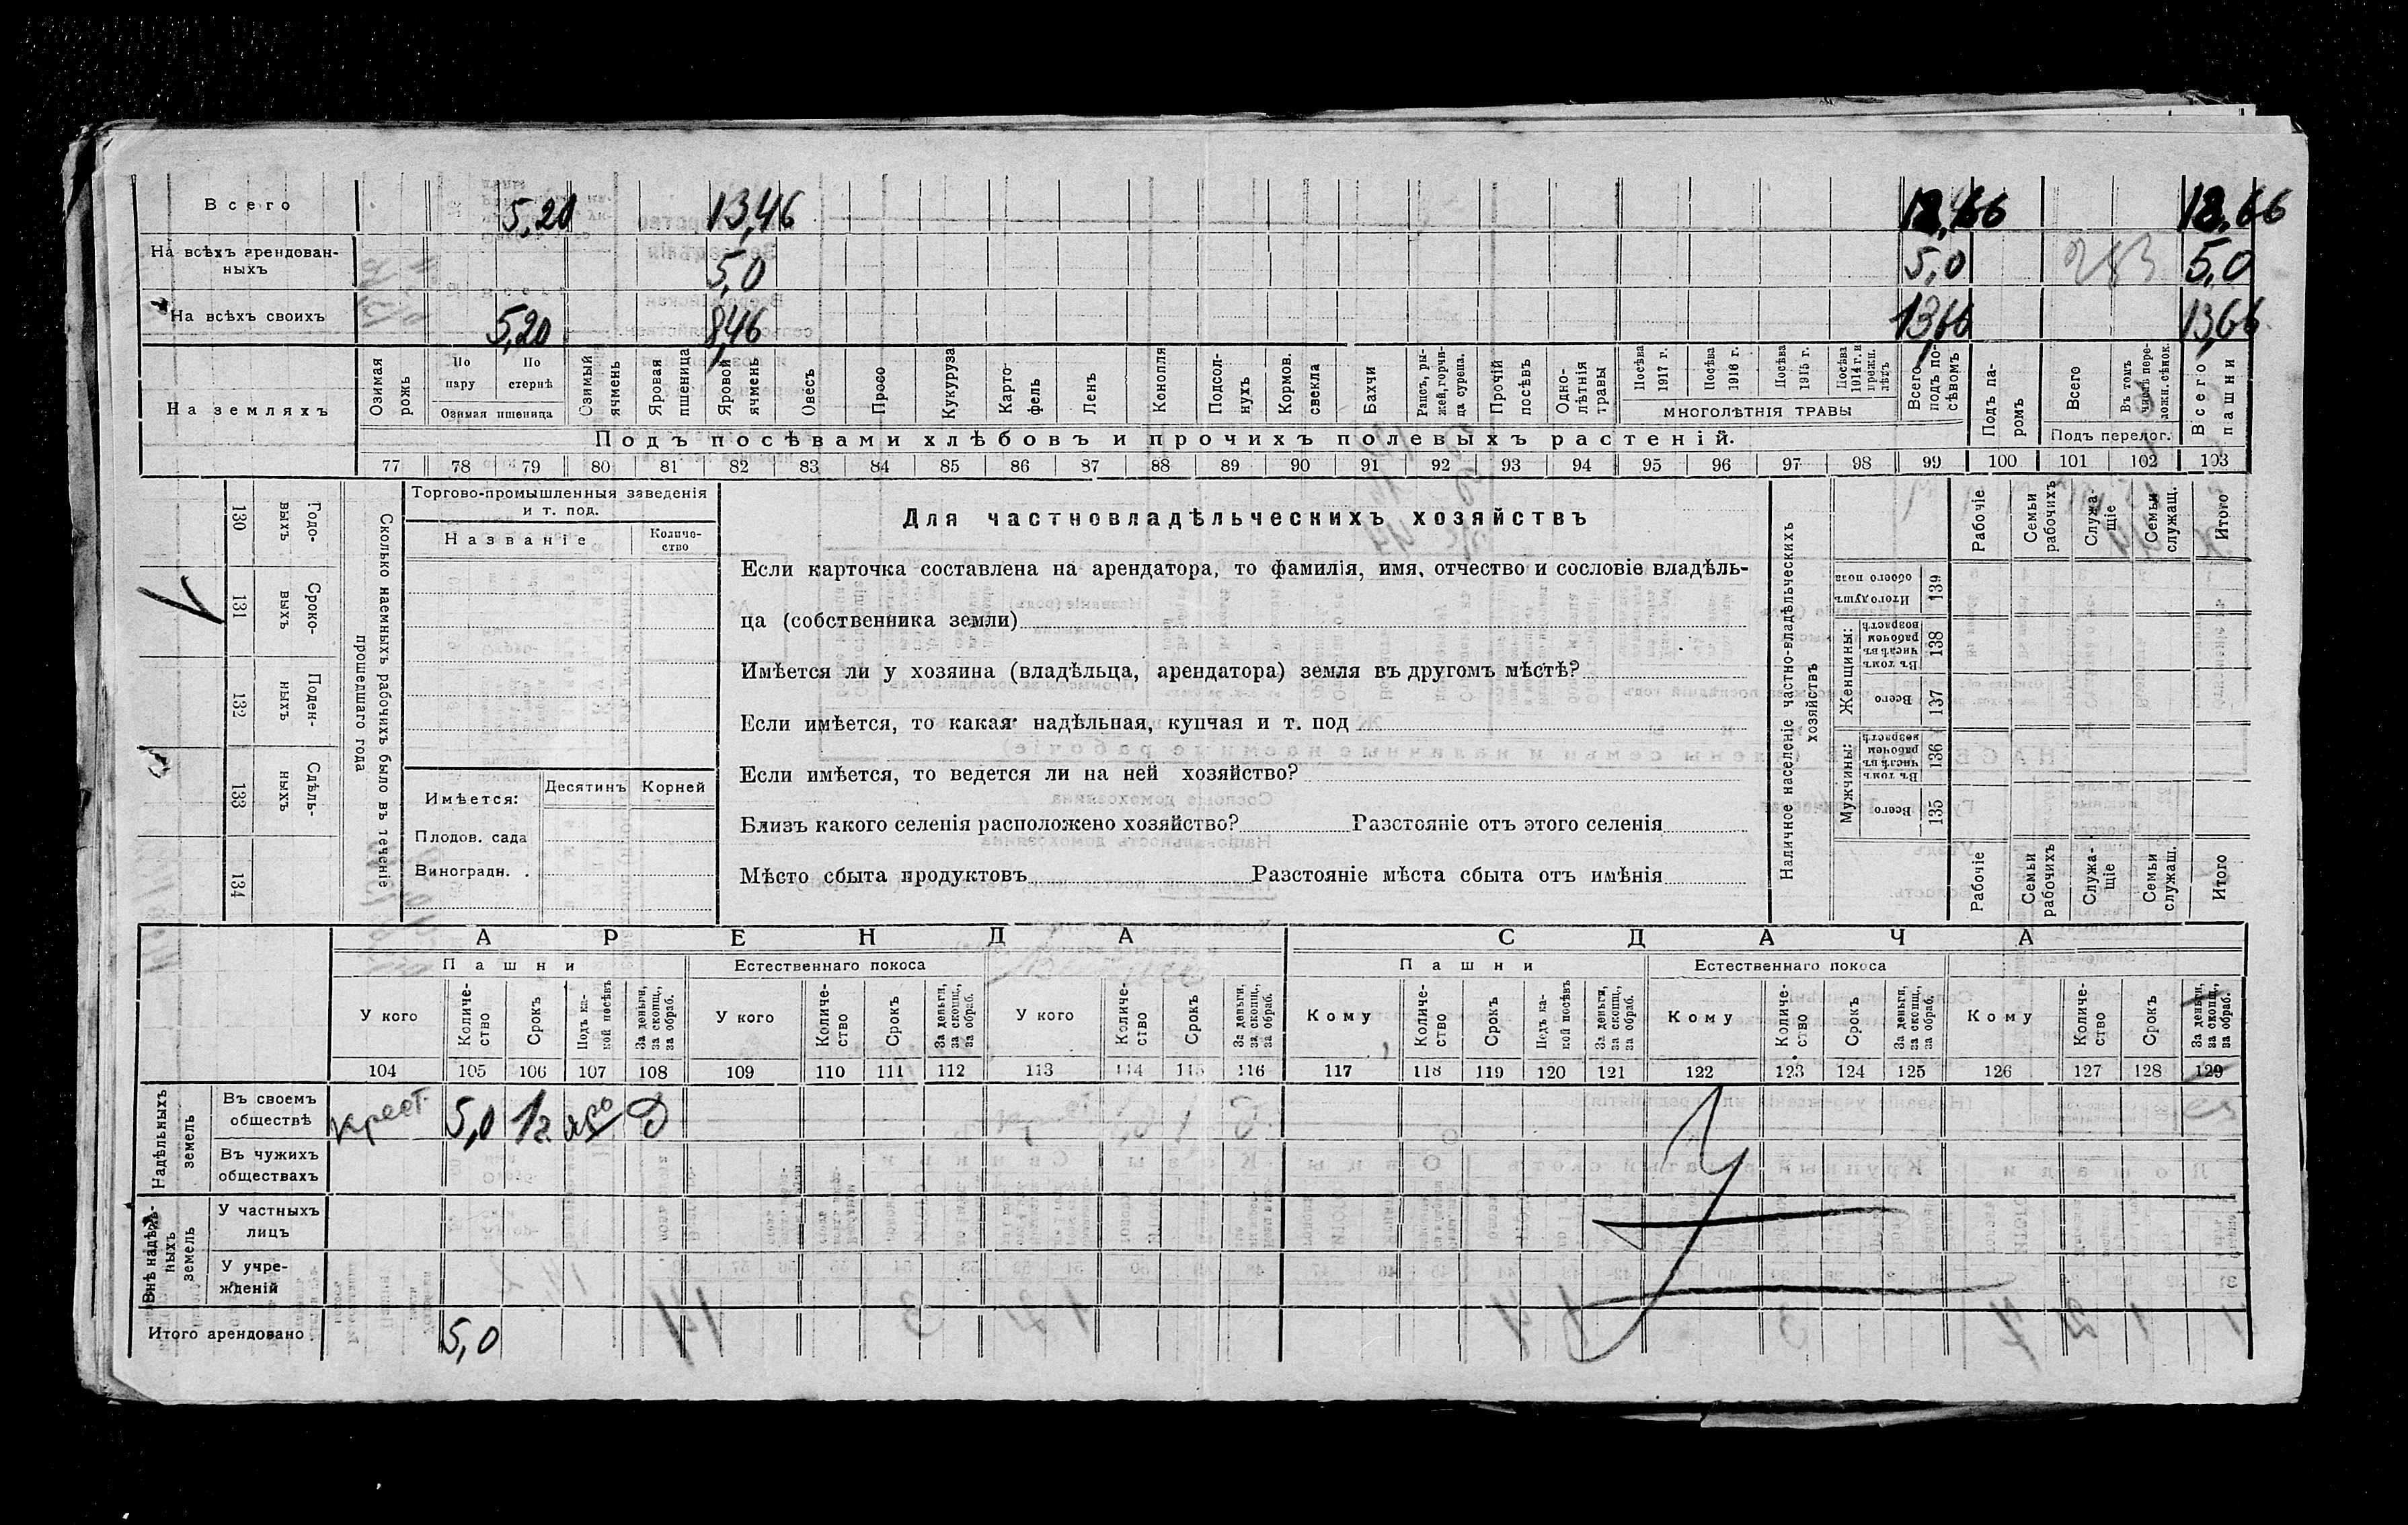 Всего 5,20 13,46 18,66 18,66
На всѣхъ арендован-
ныхъ 5,0 5,0 5,0
На всѣхъ своихъ 5,20 8,46 13,66 13,66
На земляхъ
Озимая рожь
По пару
По стернѣ
Озимая пшеница
Озимый ячмень
Яровая пшеница
Яровой ячмень
Овесъ
Просо
Кукуруза
Карто-
фель
Ленъ
Конопля
Подсол-
нухъ
Кормов. свекла
Бахчи
Рапсъ, ры-
жей, горчи-
ца сурепа.
Прочій посѣвъ
Одно-
лѣтнія травы
Посѣва 1917 г.
Посѣва 1916 г.
Посѣва 1915 г.
Посѣва 1914 г. и прежн. лѣтъ
МНОГОЛѢТНІЯ ТРАВЫ
Всего подъ по-
сѣвомъ
Подъ па-
ромъ
Всего
Въ томъ числѣ пере-
ложн. сѣнок.
Подъ перелог.
Всего пашни
Подъ посѣвами хлѣбовъ и прочихъ полевыхъ растеній.
77 78 79 80 81 82 83 84 85 86 87 88 89 90 91 92 93 94 95 96 97 98 99 100 101 102 103
130 Годо-
выхъ
131 Сроко-
выхъ
132 Поден-
ныхъ
133 Сдѣль-
ныхъ
134
Сколько наемныхъ рабочихъ было въ теченіе
прошедшаго года
Торгово-промышленныя заведенія
и т. под.
Названіе
Количе-
ство
Имѣется:
Десятинъ
Корней
Плодов. сада
Виноградн. .
Для частновладѣльческихъ хозяйствъ
Если карточка составлена на арендатора, то фамилія, имя, отчество и сословіе владѣль-
ца (собственника земли)
Имѣется ли у хозяина (владѣльца, арендатора) земля въ другомъ мѣстѣ?
Если имѣется, то какая: надѣльная, купчая и т. под
Если имѣется, то ведется ли на ней хозяйство?
Близъ какого селенія расположено хозяйство? Разстояніе отъ этого селенія
Мѣсто сбыта продуктовъ Разстояніе мѣста сбыта отъ имѣнія
Наличное населеніе частно-владѣльческихъ
хозяйствъ
Рабочіе
Семьи рабочихъ
Служа-
щіе
Семьи служащ.
Итого
Итого душъ обоего пола 139
Женщины:
Въ томъ числѣ въ рабочем возрастѣ 138
Всего 137
Мужчины:
Въ томъ числѣ въ рабочем возрастѣ 136
Всего 135
Рабочіе
Семьи рабочихъ
Служа-
щіе
Семьи служащ.
Итого
АРЕНДА
СДАЧА
Пашни
Естественнаго покоса
Пашни
Естественнаго покоса
У кого
Количе-
ство
Срокъ
Подъ ка-
кой посѣвъ
За деньги, за скопщ., за обраб.
У кого
Количе-
ство
Срокъ
За деньги, за скопщ., за обраб.
У кого
Количе-
ство
Срокъ
За деньги, за скопщ., за обраб.
Кому
Количе-
ство
Срокъ
Подъ ка-
кой посѣвъ
За деньги, за скопщ., за обраб.
Кому
Количе-
ство
Срокъ
За деньги, за скопщ., за обраб.
Кому
Количе-
ство
Срокъ
За деньги, за скопщ., за обраб.
104 105 106 107 108 109 110 111 112 113 114 115 116 117 118 119 120 121 122 123 124 125 126 127 128 129
Надѣльныхъ земель
Въ своемъ
обществѣ
Крест. 5,0 1г Д
Въ чужихъ
обществахъ
Внѣ надѣль-
ныхъ земель
У частныхъ
лицъ
У учре-
жденій
Итого арендовано 5,0